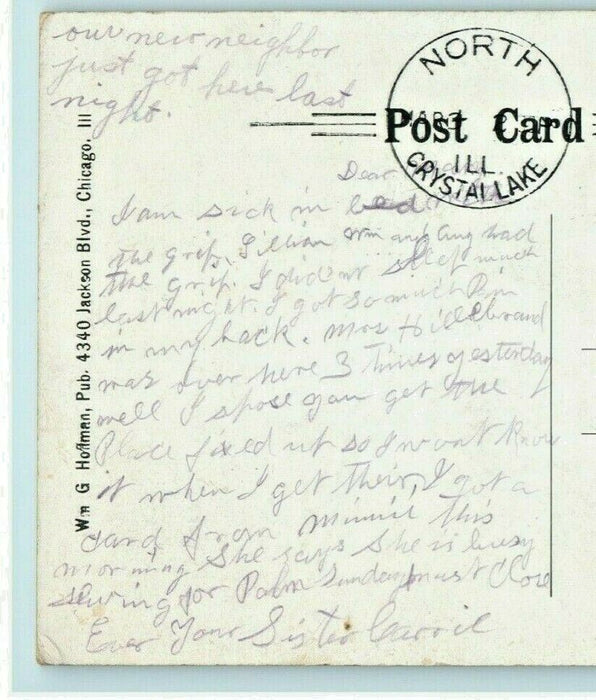 our new neighbor
just got here last
night.
NORTH
Post Card
ILL.
CRYSTAL LAKE
Wm G Hoffman, Pub. 4340 Jackson Blvd., Chicago, Ill
Dear
I am sick in bed
the grip. Lillian Wm and Aug had
the grip. I didn't sleep much
last night. I got so much Pain
in my back. Mrs Hillebrand
was over here 3 times yesterday
well I spose you got the
Place fixed up so I wont know
it when I get their, I got a
card from Minnie this
morning She says She is busy
sewing for Palm Sunday must Close
Ever Your Sister Carril